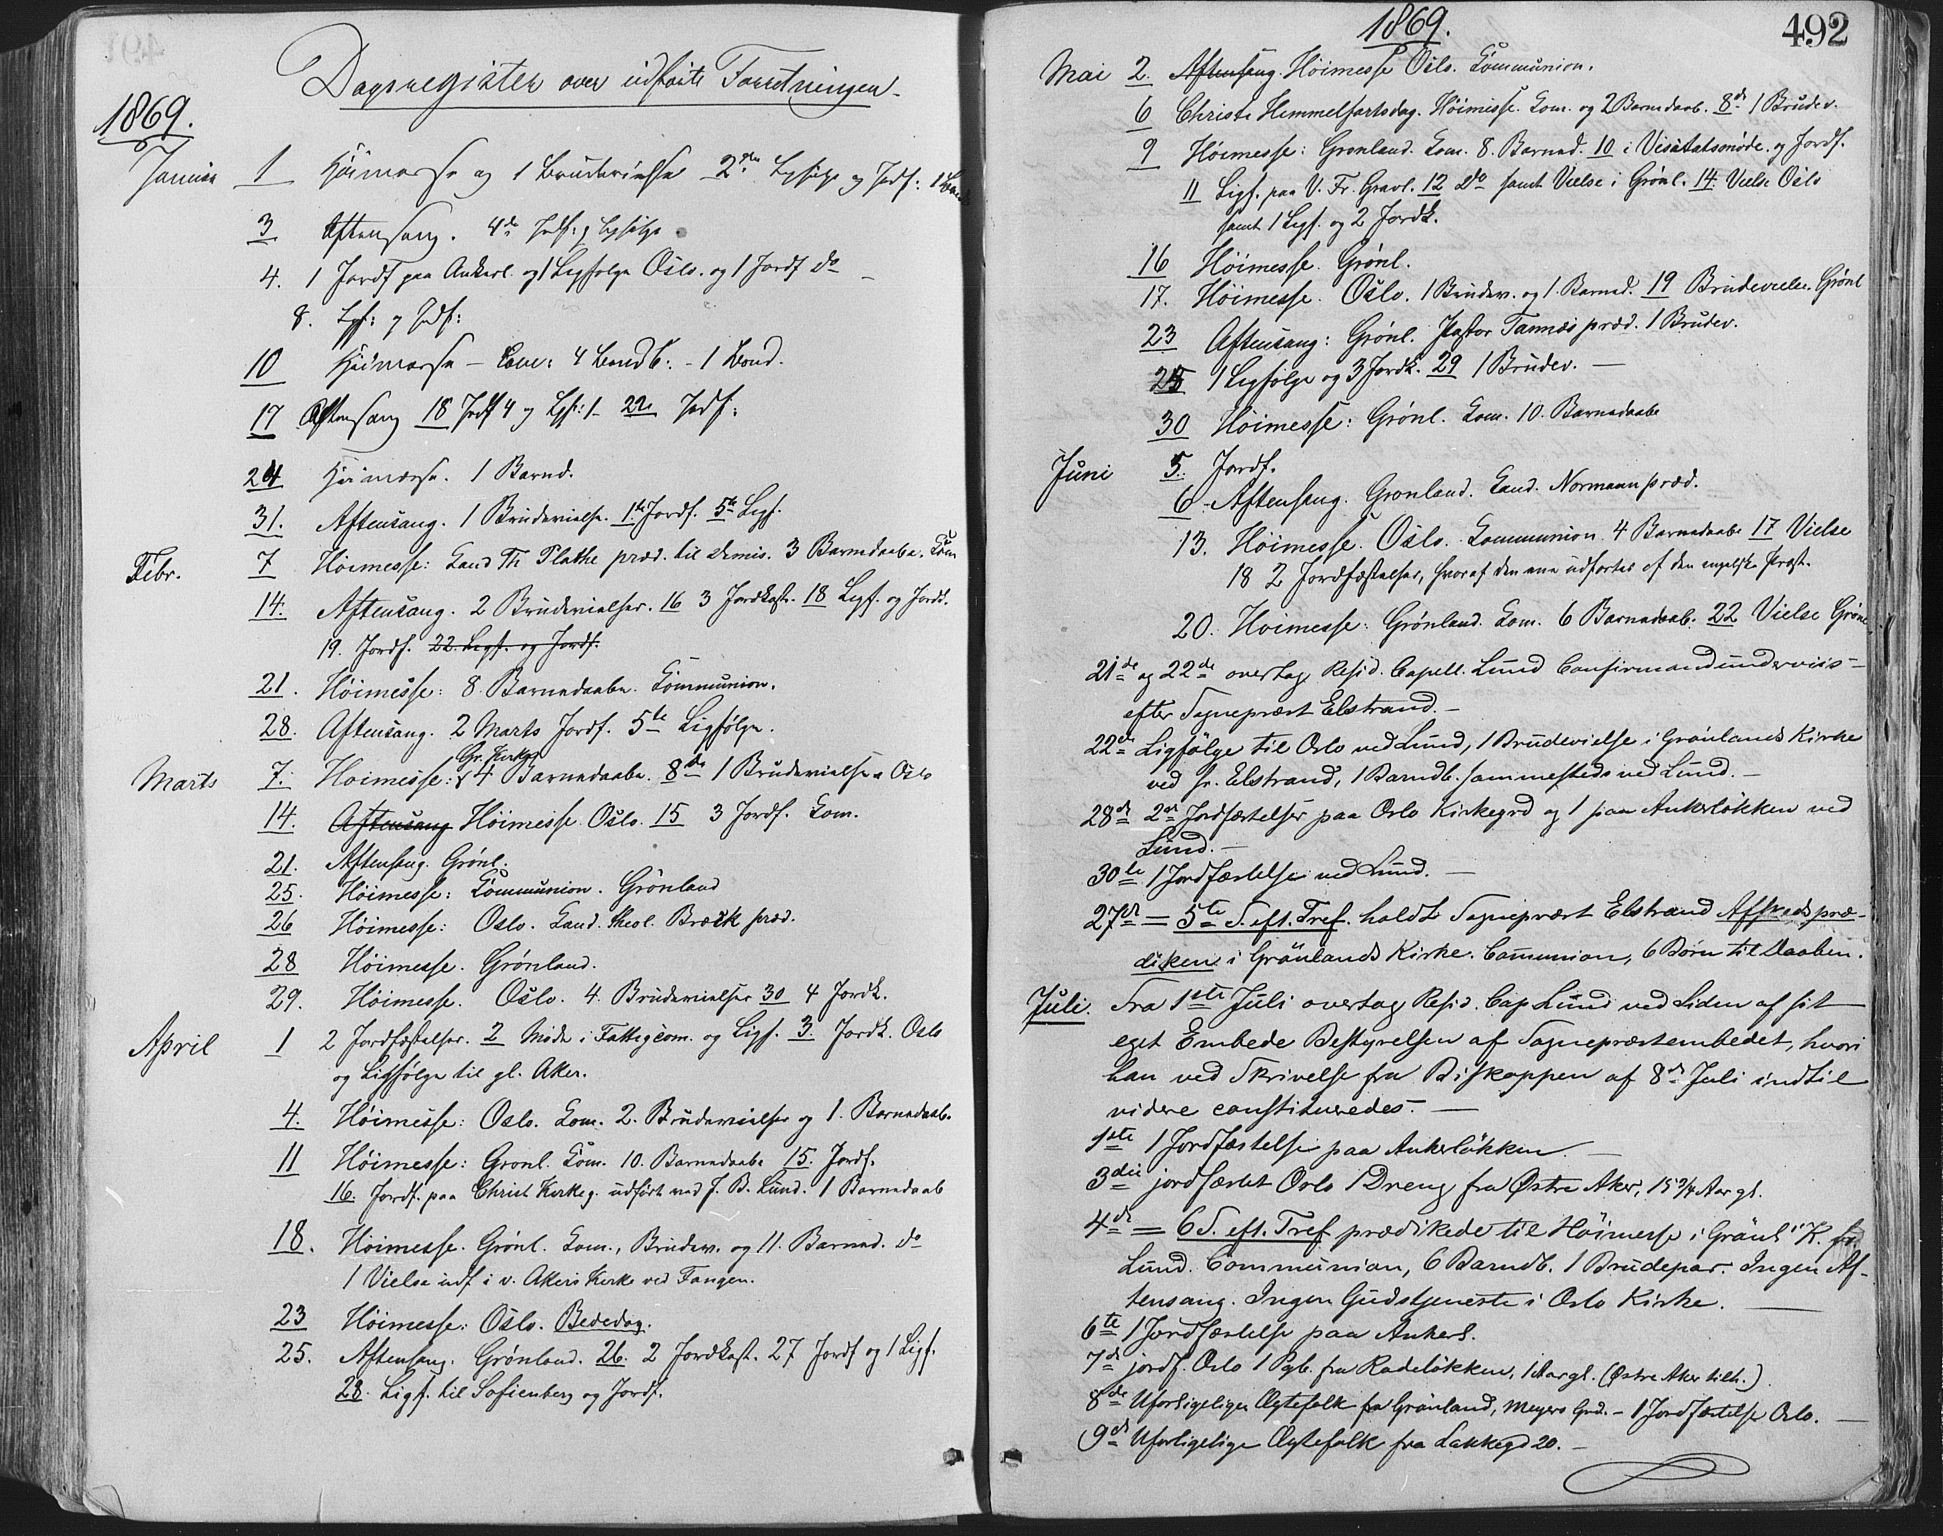 Dagsregister over udførte Forretninger
1869.
Januar 1 Høimesse og 1 Brudevielse 2den Ligfølge og Jordf:
3 Aftensang. 4de Jordf: og Ligfølge
4. 1 Jordf paa Ankerl. og 1 Ligfølge Oslo. og 1 Jordf do
8. Lgf: og Jordf:
10 Høimesse - Com: 4 Barnd: - 1 Konf.
17 Aftensang 18 Jordf 4 og Lgf: 1 - 22 Jordf:
24 Høimesse. 1 Barnd.
31. Aftensang. 1 Brudevielse. 1ste Jordf. 5te Ligf.
Febr. 7 Høimesse: Cand Th Plathe præd. til demis. 3 Barnedaabe. Kom
14. Aftensang. 2 Brudevielser. 16 3 Jordkast. 18 Ligf. og Jordk.
19. Jordf. 22. Ligf. og Jordf.
21. Høimesse: 8 Barnedaabe. Kommunion.
28. Aftensang. 2 Marts Jordf. 5te Ligfølge.
Gr. Kirke
Marts 7. Høimesse: 4 Barnedaabe. 8de 1 Brudevielse Oslo
14. Aftensang Høimesse Oslo. 15 3 Jordf. Kom.
21. Aftensang. Grønl.
25. Høimesse: Kommunion. Grønland
26 Høimesse: Oslo. Cand. theol. Bræck præd.
28 Høimesse. Grønland.
29. Høimesse. Oslo. 4 Brudevielser 30 4 Jordk.
April 1 2 Jordfæstelser. 2 Møde i Fattigcom. og Ligf. 3. Jordk. Oslo
og Ligfølge til gl. Aker.
4. Høimesse: Oslo. Kom. 2. Brudevielser og 1. Barnedaab.
11 Høimesse: Grønl. Kom. 10. Barnedaabe 15. Jordf.
16. Jordf. paa Christ Kirkeg. udført ved J. B. Lund. 1 Barnedaab
18. Høimesse. Grønl. Kom., Brudev. og 11. Barned. do
1 Vielse udf i v. Akers Kirke ved Fangen.
23 Høimesse: Oslo. Bededag.
25. Aftensang. Grønland. 26. 2 Jordkast. 27 Jordf og 1 Ligf.
28. Ligf. til Sofienberg og Jordf.
1869.
492
Mai 2. Aftensang. Høimesse Oslo. Kommunion.
6 Christi Himmelfartsdag. Høimesse. Kom. og 2 Barnedaab. 8de 1 Brudev.
9 Høimesse: Grønland. Kom. 8. Barned. 10 i Visitatsmøde. og Jordf.
11 Ligf. paa V. Fr. Gravl. 12 do samt Vielse i Grønl. 14. Vielse Oslo
samt 1 Ligf. og 2 Jordk.
16 Høimesse. Grønl.
17. Høimesse. Oslo. 1 Brudev. og 1. Barned. 19 Brudevielse. Grønl
23 Aftensang: Grønl. Pastor Tannæs præd. 1 Brudev.
25 1 Ligfølge og 3 Jordk. 29 1 Brudev. —
30 Høimesse: Grønl. Kom. 10. Barnedaabe
Juni 5. Jordf.
6 Aftensang. Grønland. Cand. Normann præd.
13. Høimesse. Oslo. Kommunion. 4 Barnedaabe 17 Vielse
18 2 Jordfæstelser, hvoraf den ene udførtes af den engelske Præst.
20. Høimesse: Grønland. Kom. 6 Barnedaab. 22 Vielse Grønl
21de og 22de overtog Resid. Capell. Lund Confirmandunderviis-
efter Sognepræst Elstrand. —
22de Ligfølge til Oslo ved Lund, 1 Brudevielse i Grønlands Kirke
ved hr. Elstrand, 1 Barndb. sammesteds ved Lund. —
28de 2de Jordfæstelser paa Oslo Kirkegrd og 1 paa Ankerløkken ved
Lund. —
30te 1 Jordfæstelse ved Lund. —
27de = 5te S. eft. Tref. holdt Sognepræst Elstrand Afskedspræ-
diken i Grønlands Kirke. Communion, 6 Børn til Daaben.
Juli. Fra 1ste Juli overtog Resid. Cap Lund ved Siden af sit
eget Embede Bestyrelsen af Sognepræstembedet, hvori
han ved Skrivelse fra Biskoppen af 8de Juli indtil
videre constitueredes. —
1ste 1 Jordfæstelse paa Ankerløkken. —
3die jordfæstet Oslo 1 Dreng fra Østre Aker, 15 3/4 Aar gl.
4de = 6 S. eft. Tref prædikede til Høimesse i Grønl K.
Lund. Communion, 6 Barndb. 1 Brudepar. Ingen Af-
tensang. Ingen Gudstjeneste i Oslo Kirke. —
6te 1 Jordfæstelse paa Ankerl.
7de jordf. Oslo 1 Pgb. fra Rodeløkken, 1 Aar gl. (Østre Aker tilh.)
8de Uforligelige Ægtefolk fra Grønland, Meyers Grd. - 1 Jordfæstelse Oslo. —
9de Uforligelige Ægtefolk fra Lakkegd 20. —